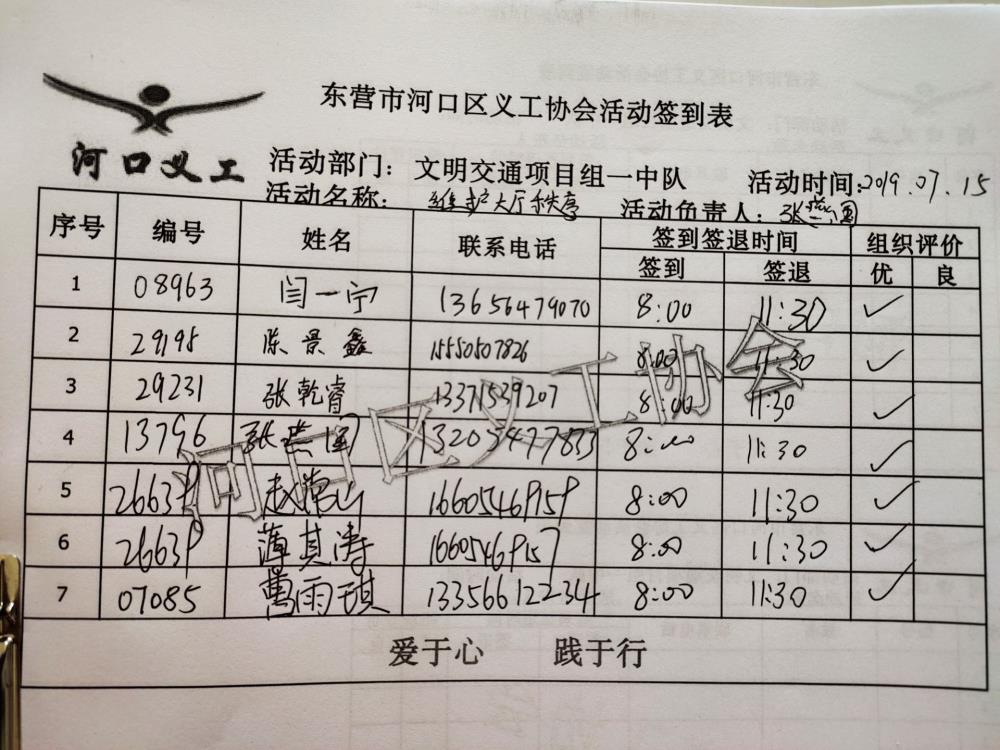 东营市河口区义工协会活动签到表
河口义工
活动部门： 文明交通项目组一中队 活动时间:2019.07.15
活动名称： 维护大厅秩序 活动负责人：张燕国
序号 编号 姓名 联系电话 签到签退时间 组织评价
签到 签退 优 良
1 08963 闫一宁 13656479070 8:00 11:30 ✓
2 29195 陈景鑫 15550507826 8:00 11:30 ✓
3 29231 张乾睿 13371539207 8:00 11:30 ✓
4 13796 张燕国 13205477833 8:00 11:30 ✓
5 26639 赵常山 16605469159 8:00 11:30 ✓
6 26639 薄其涛 16605469157 8:00 11:30 ✓
7 07085 雨琪 13356612234 8:00 11:30 ✓
河口区义工协会
爱于心 践于行